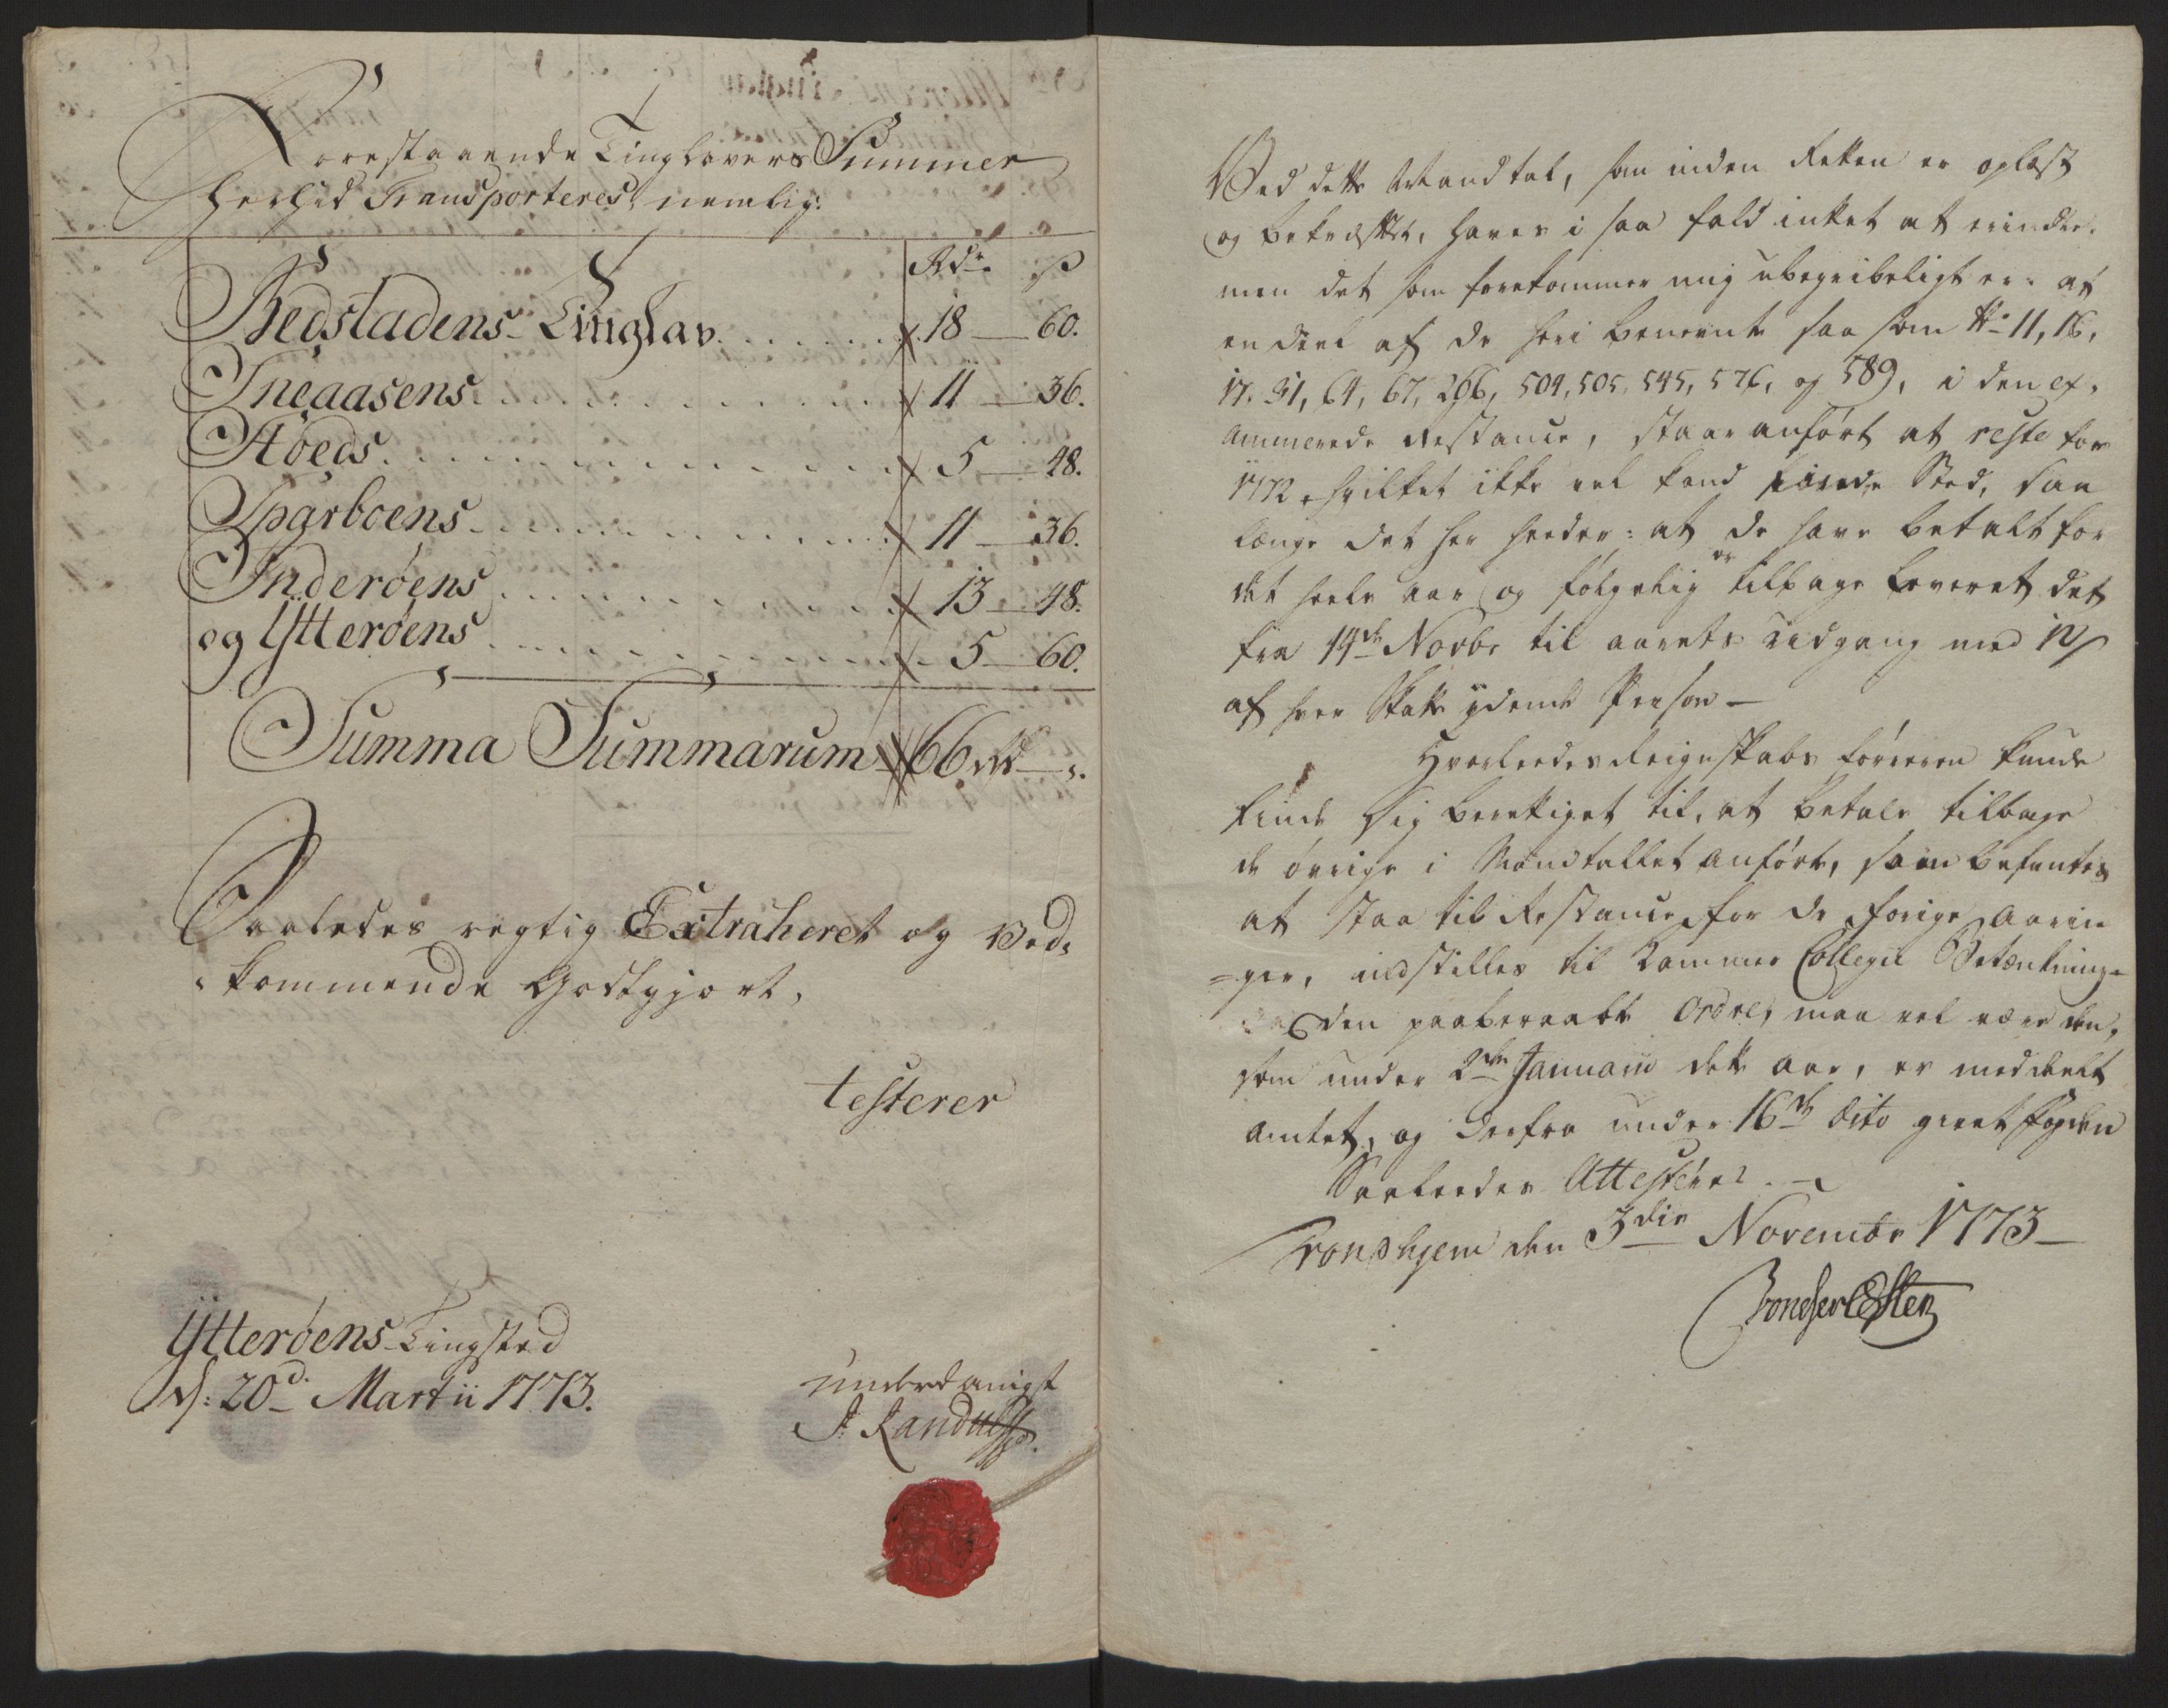 Forestaaende Tinglavers Summer
herhid Transporteres, nemlig:
Rdr. ß
Bedstadens Tinglav 18 60.
Sneaasens 11 36.
Støeds 5 48.
Sparboens 11 36.
Inderøens 13 48.
og Ytterøens 5 60.
Summa Summarum 66 rd s.
Saaledes regtig Extraheret og Ved-
kommende Godtgjort,
testerer
Ytterøens Tingsted
d: 20d. Martii 1773.
underdanigst
J: Randulff
Ved dette Mandtal, som inden Retten er oplæst
og bekræftet, haves i saa fald intet at erindre.
men det som forekommer mig ubegribeligt er: at
en deel af de heri benevnte saa som No 11, 16,
17. 31, 64, 67, 266, 504, 505, 545, 576, og 589, i den ex-
aminerede Restance, staar anført at reste for
1772, hvilket ikke vel kand finde Sted, saa
længe det her heeder: at de have betalt for
det heele aar og følgelig er tilbage leveret det
fra 14de Novbr til aarets Udgang med 12 ß
af hver Skatte ydende Person —
Hvorleedes Reignskabs føreren kunde
finde sig berettiget til, at betale tilbage
de øvrige i Mandtallet anførte, som befantes
at staa til Restance for de forige Aarin-
=ger, indstilles til Kammer Collegii Betænkning
den paaberaabte Ordre, maa vel være den,
som under 2den Januarii dette aar, er meddeelt
Amtet, og derfra under 16de dito givet Fogden
Saaleedes Attesteres.
Tronhjem den 3die Novembr 1773